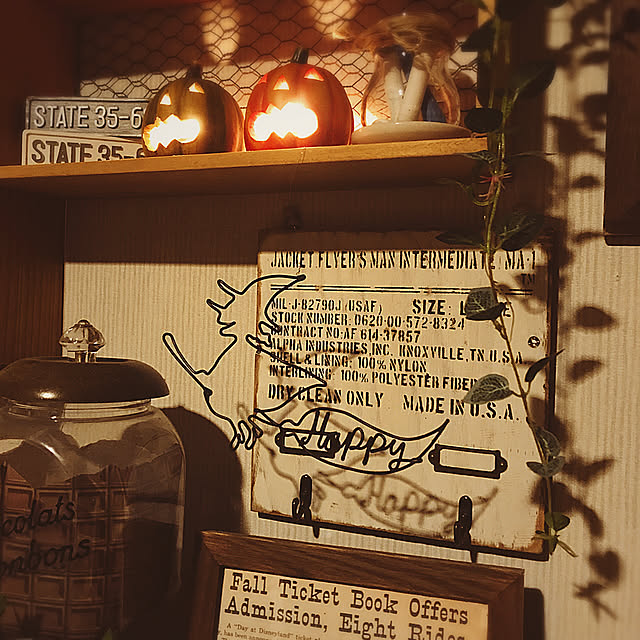 STATE 35-6
STATE 35-6
JACKET FLYER'S MAN INTERMEDIATE MA-1
TM
MIL-J-8279OJ (USAF) SIZE:
STOCK NUMBER. D620-00-572-8324
CONTRACT NO. AF 614-37857
ALPHA INDUSTRIES, INC. KNOXVILLE, TN. U.S.A.
SHELL & LINING: 100% NYLON
INTERLINING 100% POLYESTER FIBER
DRY CLEAN ONLY MADE IN U.S.A.
Happy
colats
onbons
Fall Ticket Book Offers
Admission, Eight Rides
A "Day at Disneyland" ticket
has been